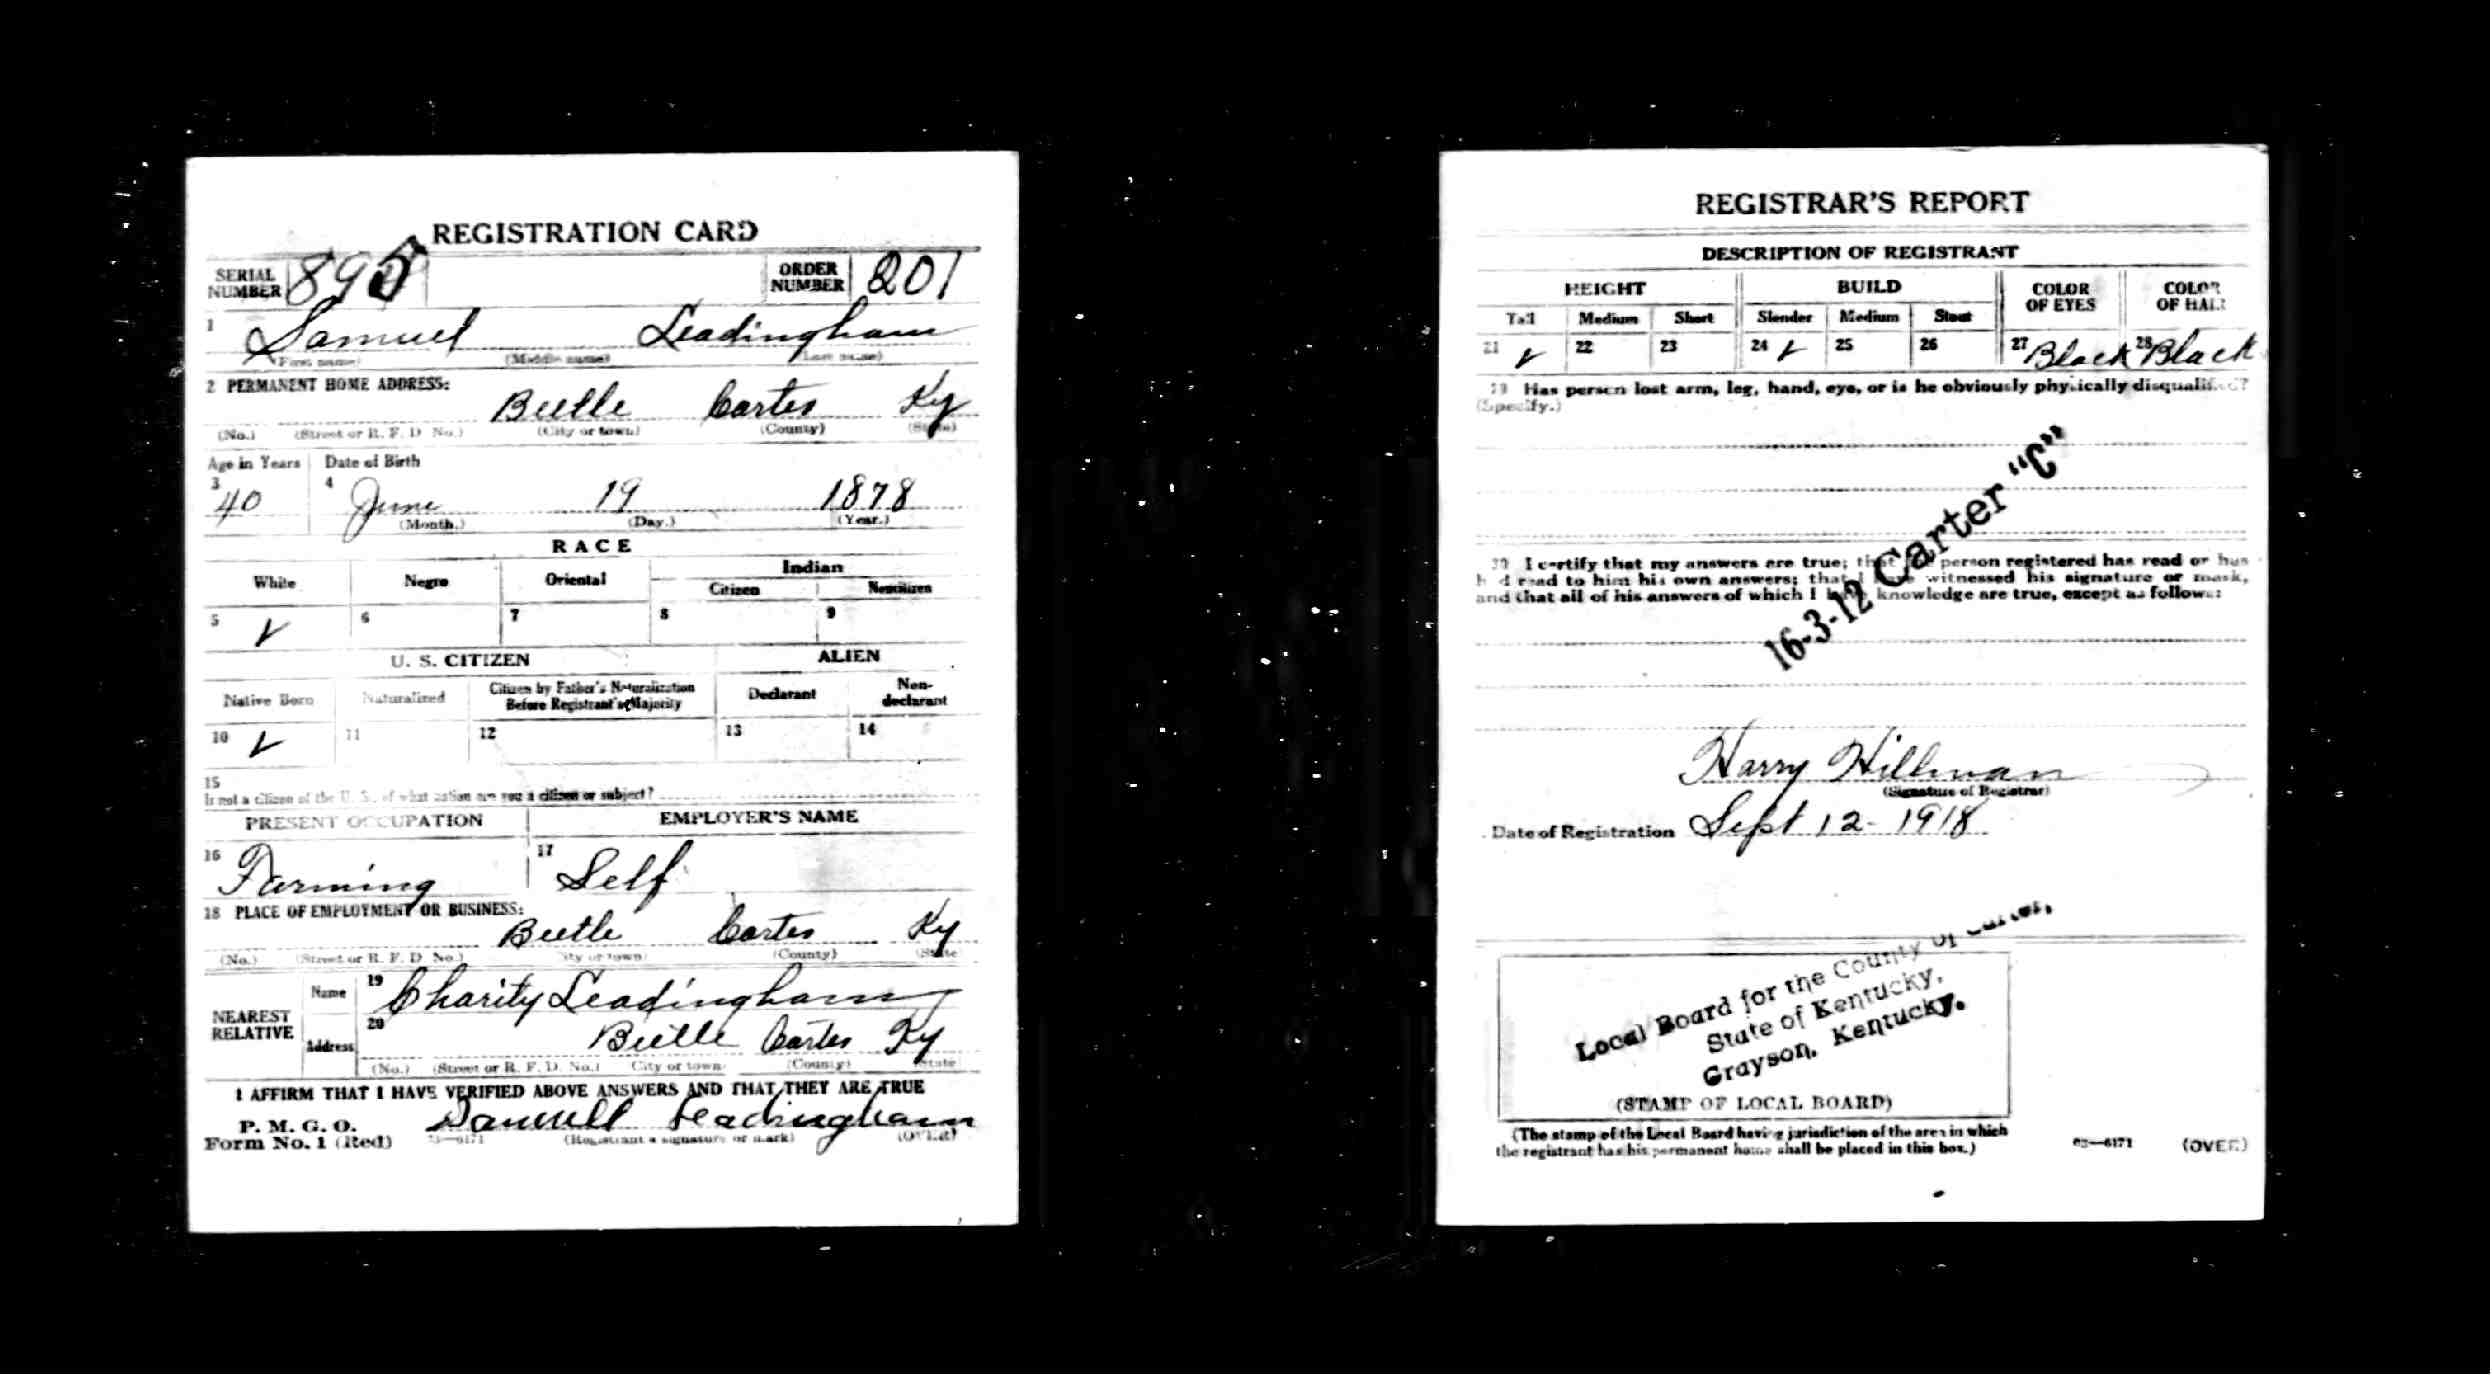 REGISTRATION CARD
SERIAL NUMBER 895 ORDER NUMBER 201
1 Samuel Leadingham
(First name) (Middle name) (Last name)
2 PERMANENT HOME ADDRESS:
Beetle Carter Ky
(No.) (Street or R. F. D. No.) (City or town) (County) (State)
Age in Years Date of Birth
3 40 4 June 19 1878
(Month.) (Day.) (Year.)
RACE
White Negro Oriental Indian
Citizen Noncitizen
5 ✓ 6 7 8 9
U. S. CITIZEN ALIEN
Native Born Naturalized Citizen by Father's Naturalization Before Registrant's Majority Declarant Non-declarant
10 ✓ 11 12 13 14
15
If not a citizen of the U. S., of what nation are you a citizen or subject?
PRESENT OCCUPATION EMPLOYER'S NAME
16 Farming 17 Self
18 PLACE OF EMPLOYMENT OR BUSINESS:
Beetle Carter Ky
(No.) (Street or R. F. D. No.) (City or town) (County) (State)
NEAREST RELATIVE
Name 19 Charity Leadingham
Address 20 Beetle Carter Ky
(No.) (Street or R. F. D. No.) (City or town) (County) (State)
I AFFIRM THAT I HAVE VERIFIED ABOVE ANSWERS AND THAT THEY ARE TRUE
P. M. G. O.
Form No. 1 (Red) 03—6171 Samuell Leadingham
(Registrant's signature or mark) (OVER)
REGISTRAR'S REPORT
DESCRIPTION OF REGISTRANT
HEIGHT BUILD COLOR OF EYES COLOR OF HAIR
Tall Medium Short Slender Medium Stout
21 ✓ 22 23 24 ✓ 25 26 27 Black 28 Black
29 Has person lost arm, leg, hand, eye, or is he obviously physically disqualified?
(Specify.)
16-3-12 Carter "C"
30 I certify that my answers are true; that the person registered has read or has
had read to him his own answers; that I have witnessed his signature or mark,
and that all of his answers of which I have knowledge are true, except as follows:
Harry Hillman
(Signature of Registrar)
Date of Registration Sept 12 - 1918
Local Board for the County of Carter,
State of Kentucky,
Grayson, Kentucky.
(STAMP OF LOCAL BOARD)
(The stamp of the Local Board having jurisdiction of the area in which
the registrant has his permanent home shall be placed in this box.)
03—6171 (OVER)